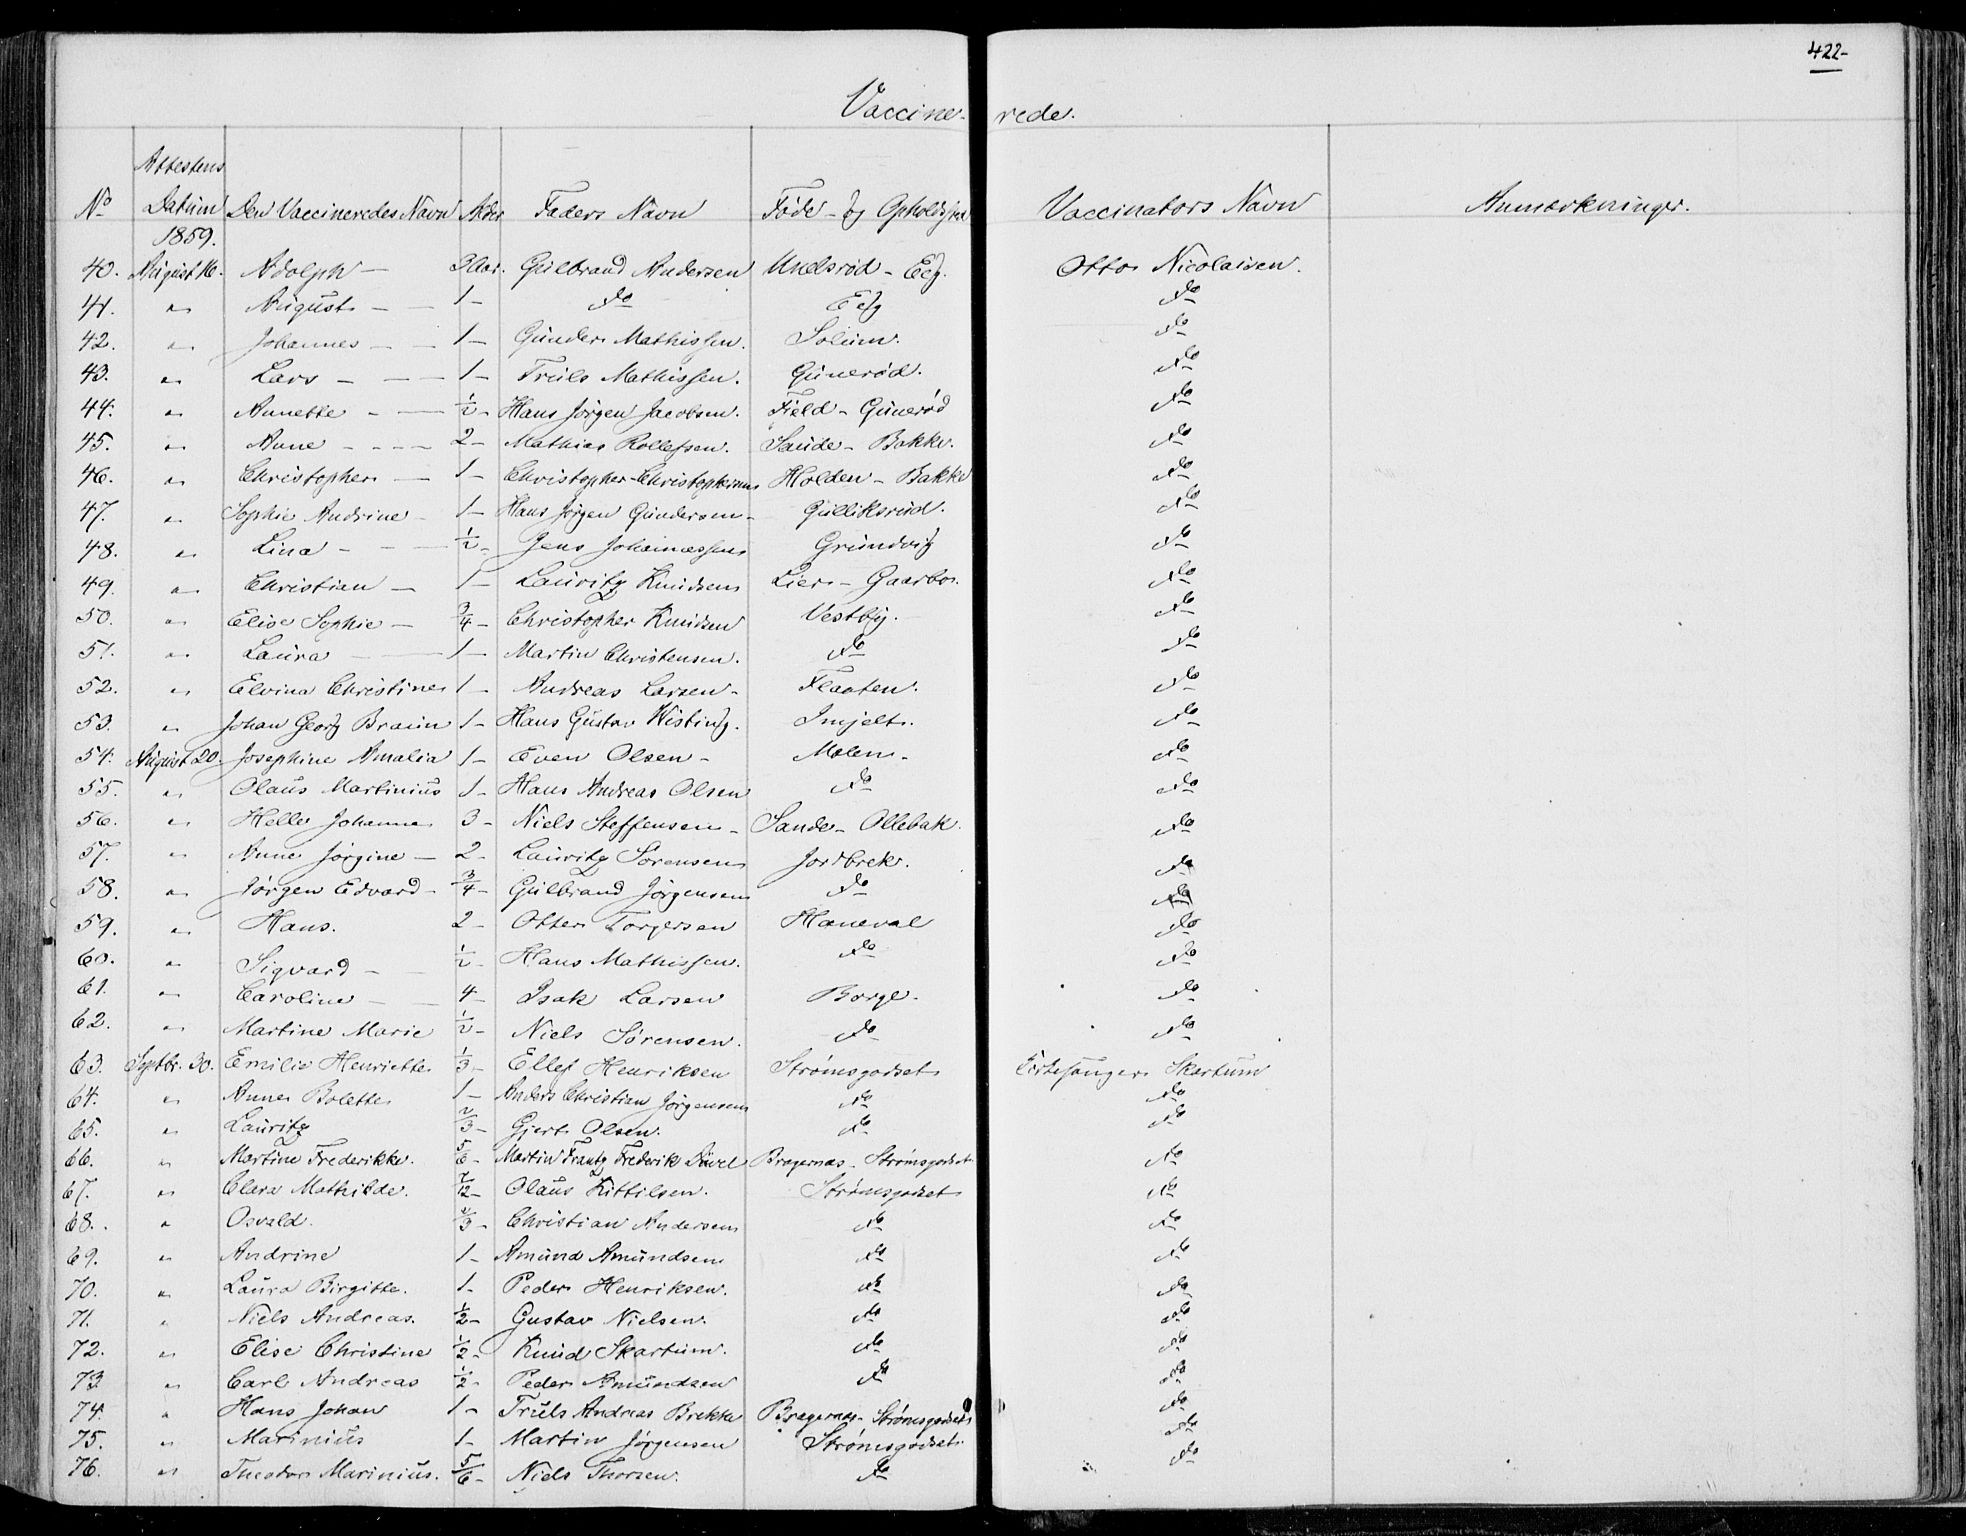 422-
Vaccine-rede.
No Attestens Datum Den Vaccineredes Navn Alder Faders Navn Føde- og Opholdssted Vaccinators Navn Anmærkninger.
1859.
40. August 16. Adolph - 3 Aar. Gulbrand Andersen - Eeg. Otto Nicolaisen.
41. " August - 1- do Eeg do
42. " Johannes - 1- Gunder Mathissen. Solum. do
43. " Lars - 1- Truls Mathissen. Gunerød. do
44. " Annette - 1/2- Hans Jørgen Jacobsen. Field - Gunerød do
45. " Anne - 2- Mathias Rollefsen. Sande - Bakke. do
46. " Christopher - 1- Christopher Christophersen Holden - Bakke do
47. " Sophie Andrine - 1- Hans Jørgen Gundersen - Gulliksrud. do
48. " Lina - 1/2- Jens Johannessen Grundvig do
49. " Christian - 1- Lauritz Knudsen Lier - Gaarbo. do
50. " Elise Sophie - 3/4- Christopher Knudsen Vestby. do
51. " Laura - 1- Martin Christensen. do do
52. " Elvina Christine 1- Andreas Larsen - Flaaten. do
53. " Johan Georg Braun 1- Hans Gustav Wisting. Imjelt. do
54. August 20. Josephine Amalia 1- Even Olsen - Molen - do
55. " Olaus Martinius 1- Hans Andreas Olsen do do
56. " Helle Johanne 3- Niels Steffensen - Sande - Ollebak. do
57. " Anne Jørgine - 2- Lauritz Sørensen Jordbrek. do
58. " Jørgen Edvard - 3/4- Gulbrand Jørgensen do do
59. " Hans. 2- Otter Torgersen Haneval do
60. " Sigvard - 1/2- Hans Mathissen. do do
61. " Caroline - 4- Isak Larsen Borge. do
62. " Martine Marie 1/2- Niels Sørensen. do do
63. Septbr. 30. Emilie Henriette 1/3- Ellef Henriksen Strømsgodset Kirkesanger Skartum
64. " Anne Bolette 1- Anders Christian Jørgensen do do
65. " Lauritz 2/3- Gjert Olsen. do do
66. " Martine Frederikke. 5/6- Martin Frantz Frederik Bragernæs - Strømsgodset do
67. " Clara Mathilde. 7/12- Olaus Kittilsen. Strømsgodset do
68. " Osvald. 2/3- Christian Andersen do do
69. " Andrine 1- Amund Amundsen do do
70. " Laura Birgitte. 1- Peder Henriksen. do do
71. " Niels Andreas. 1/2- Gustav Nielsen. do do
72. " Elise Christine 1/2- Knud Skartum. do do
73 " Carl Andreas 1/2- Peder Amundsen do do
74. " Hans Johan 1- Truls Andreas Brekke Bragernæs - Strømsgodset do
75. " Marinius 1- Martin Jørgensen Strømsgodset. do
76. " Theodor Marinius. 5/6- Niels Thorsen. do do